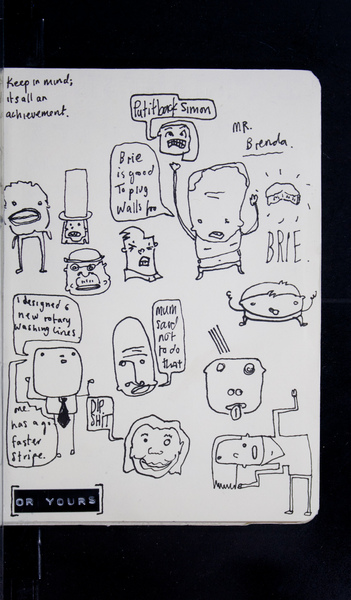 Keep in mind;
its all an
achievement.
Put it back Simon
MR.
Brenda.
Brie
is good
To plug
walls too
BRIE.
I designed 6
new rotary
washing lines
mum
said
not
to do
that
me.
has a go
faster
stripe.
DIP
SHIT
OR YOURS